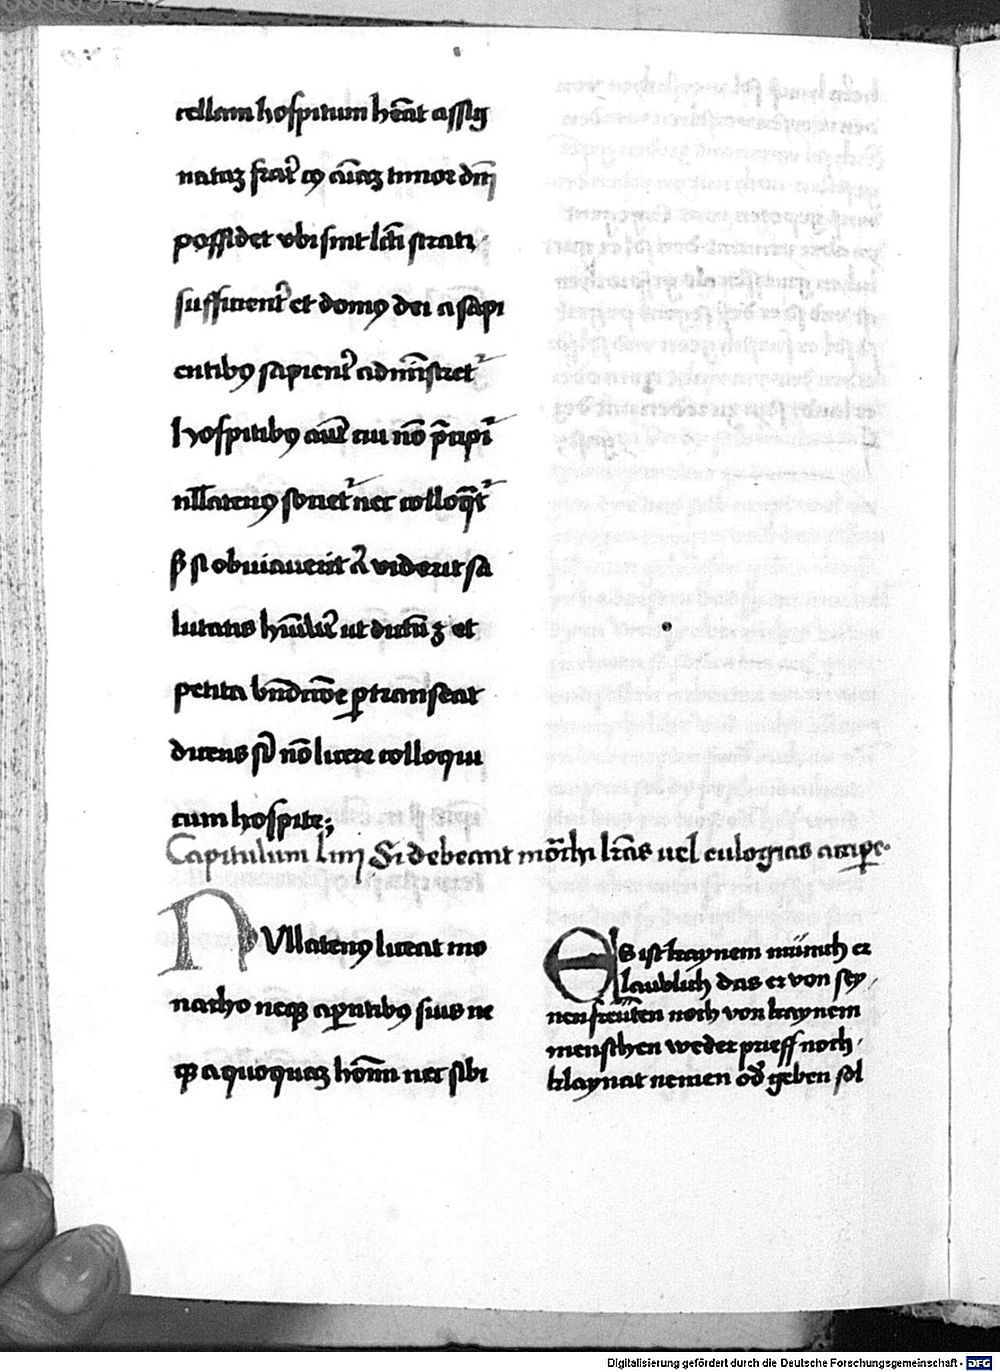 cellam hospitum hēat assig
nataʒ frat᷑ cꝰ aīaʒ timor dnī
possidet vbi sint lcti strati
sufficient᷑ et domꝰ dei a sapi
entibꝰ sapient᷑ admīstret᷑
hospitibꝰ aut̄ cui nō p̄cipi᷑
nllatenꝰ societ᷑ nec colloqt᷑
ꝫ si obuiauerit ⁊ viderit sa
lutatis hūilit᷑ ut dictū ꝫ et
petita bn̄dictōe ꝑtranseat
dicens sꝫ nō licere colloqui
cum hospite;
Capitulum liiij Si debeant mōchi lr̄as uel eulogias accipe.
NVllatenꝰ liceat mo
nacho neqꝫ aꝑntibꝰ suis ne
qꝫ a quoquaʒ hoīm nec sibi
ES ist kaynem münich er
laublich das er von sey
nen freünten noch von kaynem
menschen weder prieff noch
klaynat nemen od᷑ geben sol
Digitalisierung gefördert durch die Deutsche Forschungsgemeinschaft - DFG